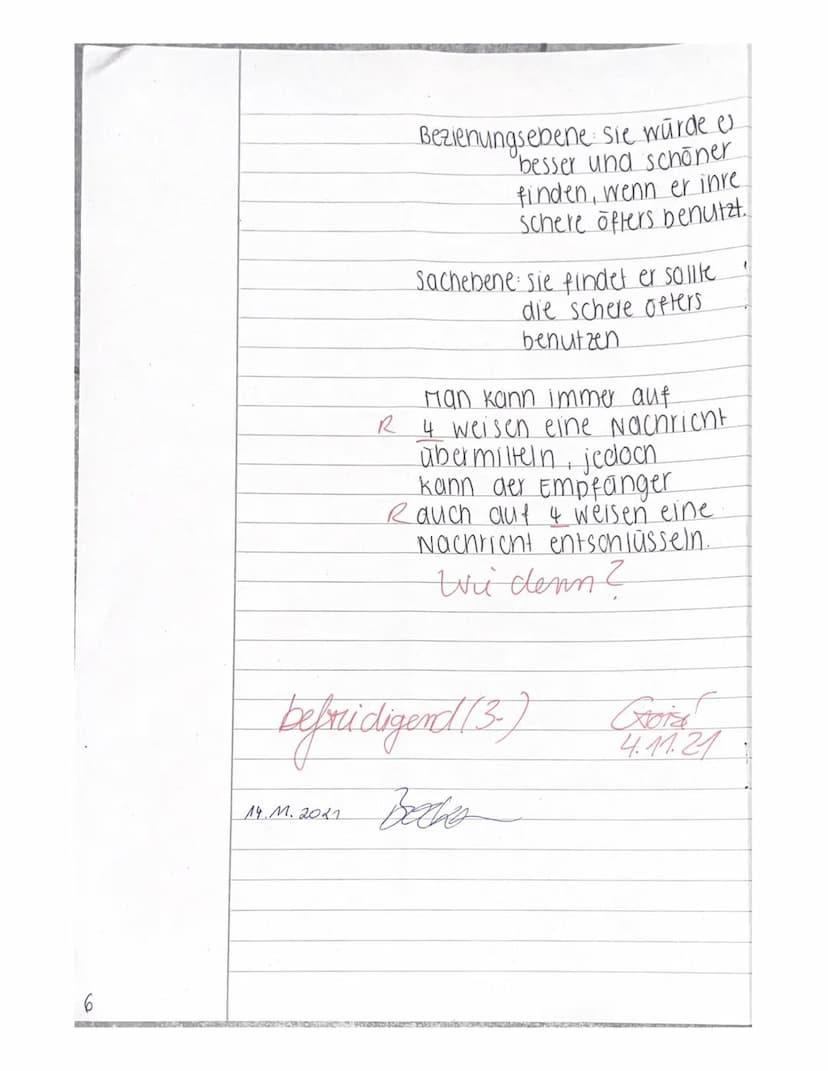 Beziehungsebene: sie würde es
besser und schöner
finden, wenn er ihre
schere öfters benutzt.
Sachebene: sie findet er sollte
die schere öfters
benutzen
Man kann immer auf
R 4 weisen eine Nachricht
übermitteln, jedoch
kann der Empfänger
R auch auf 4 weisen eine
Nachricht entschlüsseln.
Wie denn?
befriedigend (3-)
4.11.21
14.11.2021
6